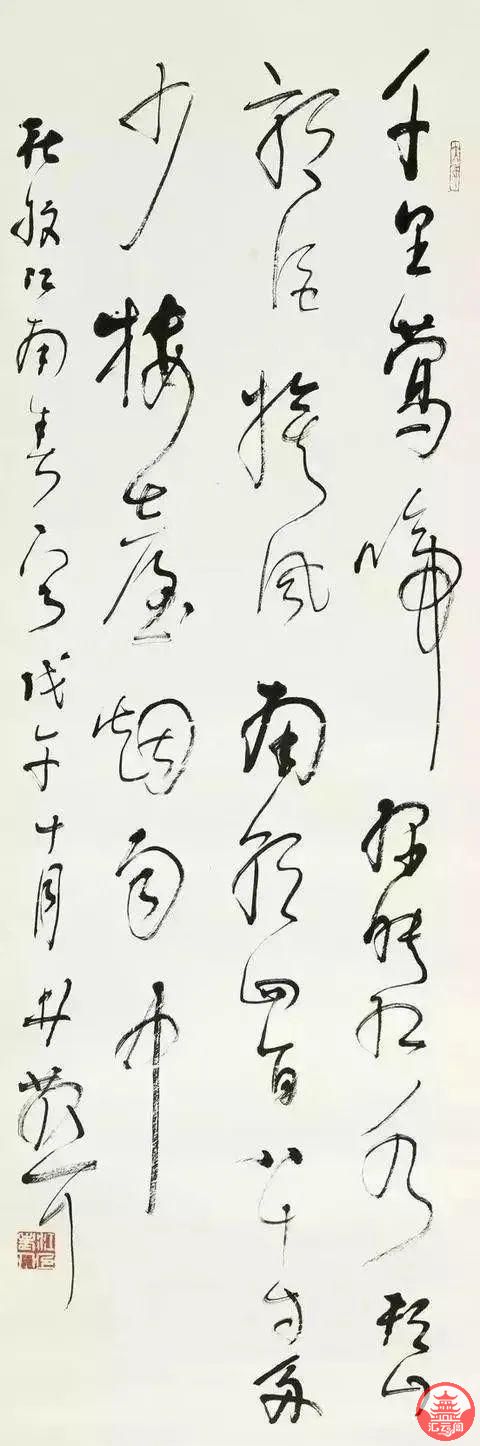 千里鶯啼绿映红水村山
郭酒旗风南朝四百八十寺多
少楼臺烟雨中
杜牧江南春 戊午十月 林散耳
汇云阁